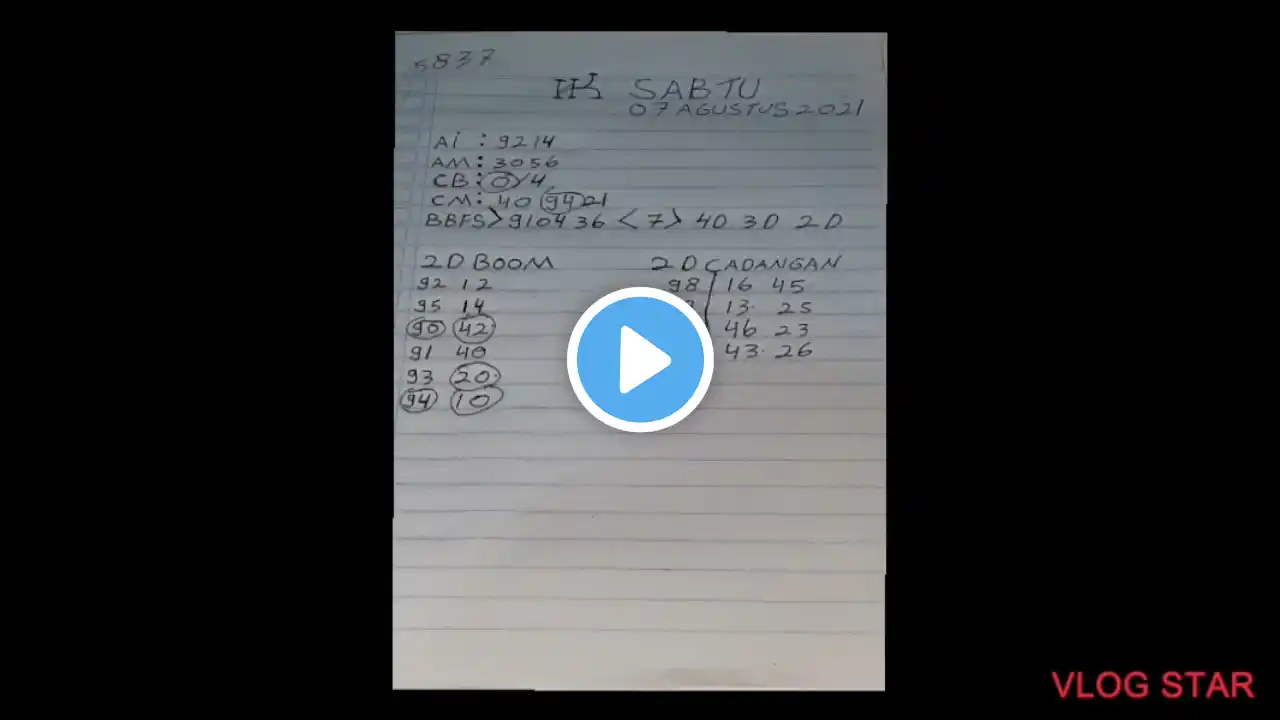 5837
HK SABTU
07 AGUSTUS 2021
Ai : 9214
AM: 3056
CB: 0/4
CM: 40 94 21
BBFS > 910436 <7> 4D 3D 2D
2D BOOM
92 12
95 14
90 42
91 40
93 20
94 10
2D CADANGAN
98 16 45
13 25
46 23
43 26
VLOG STAR